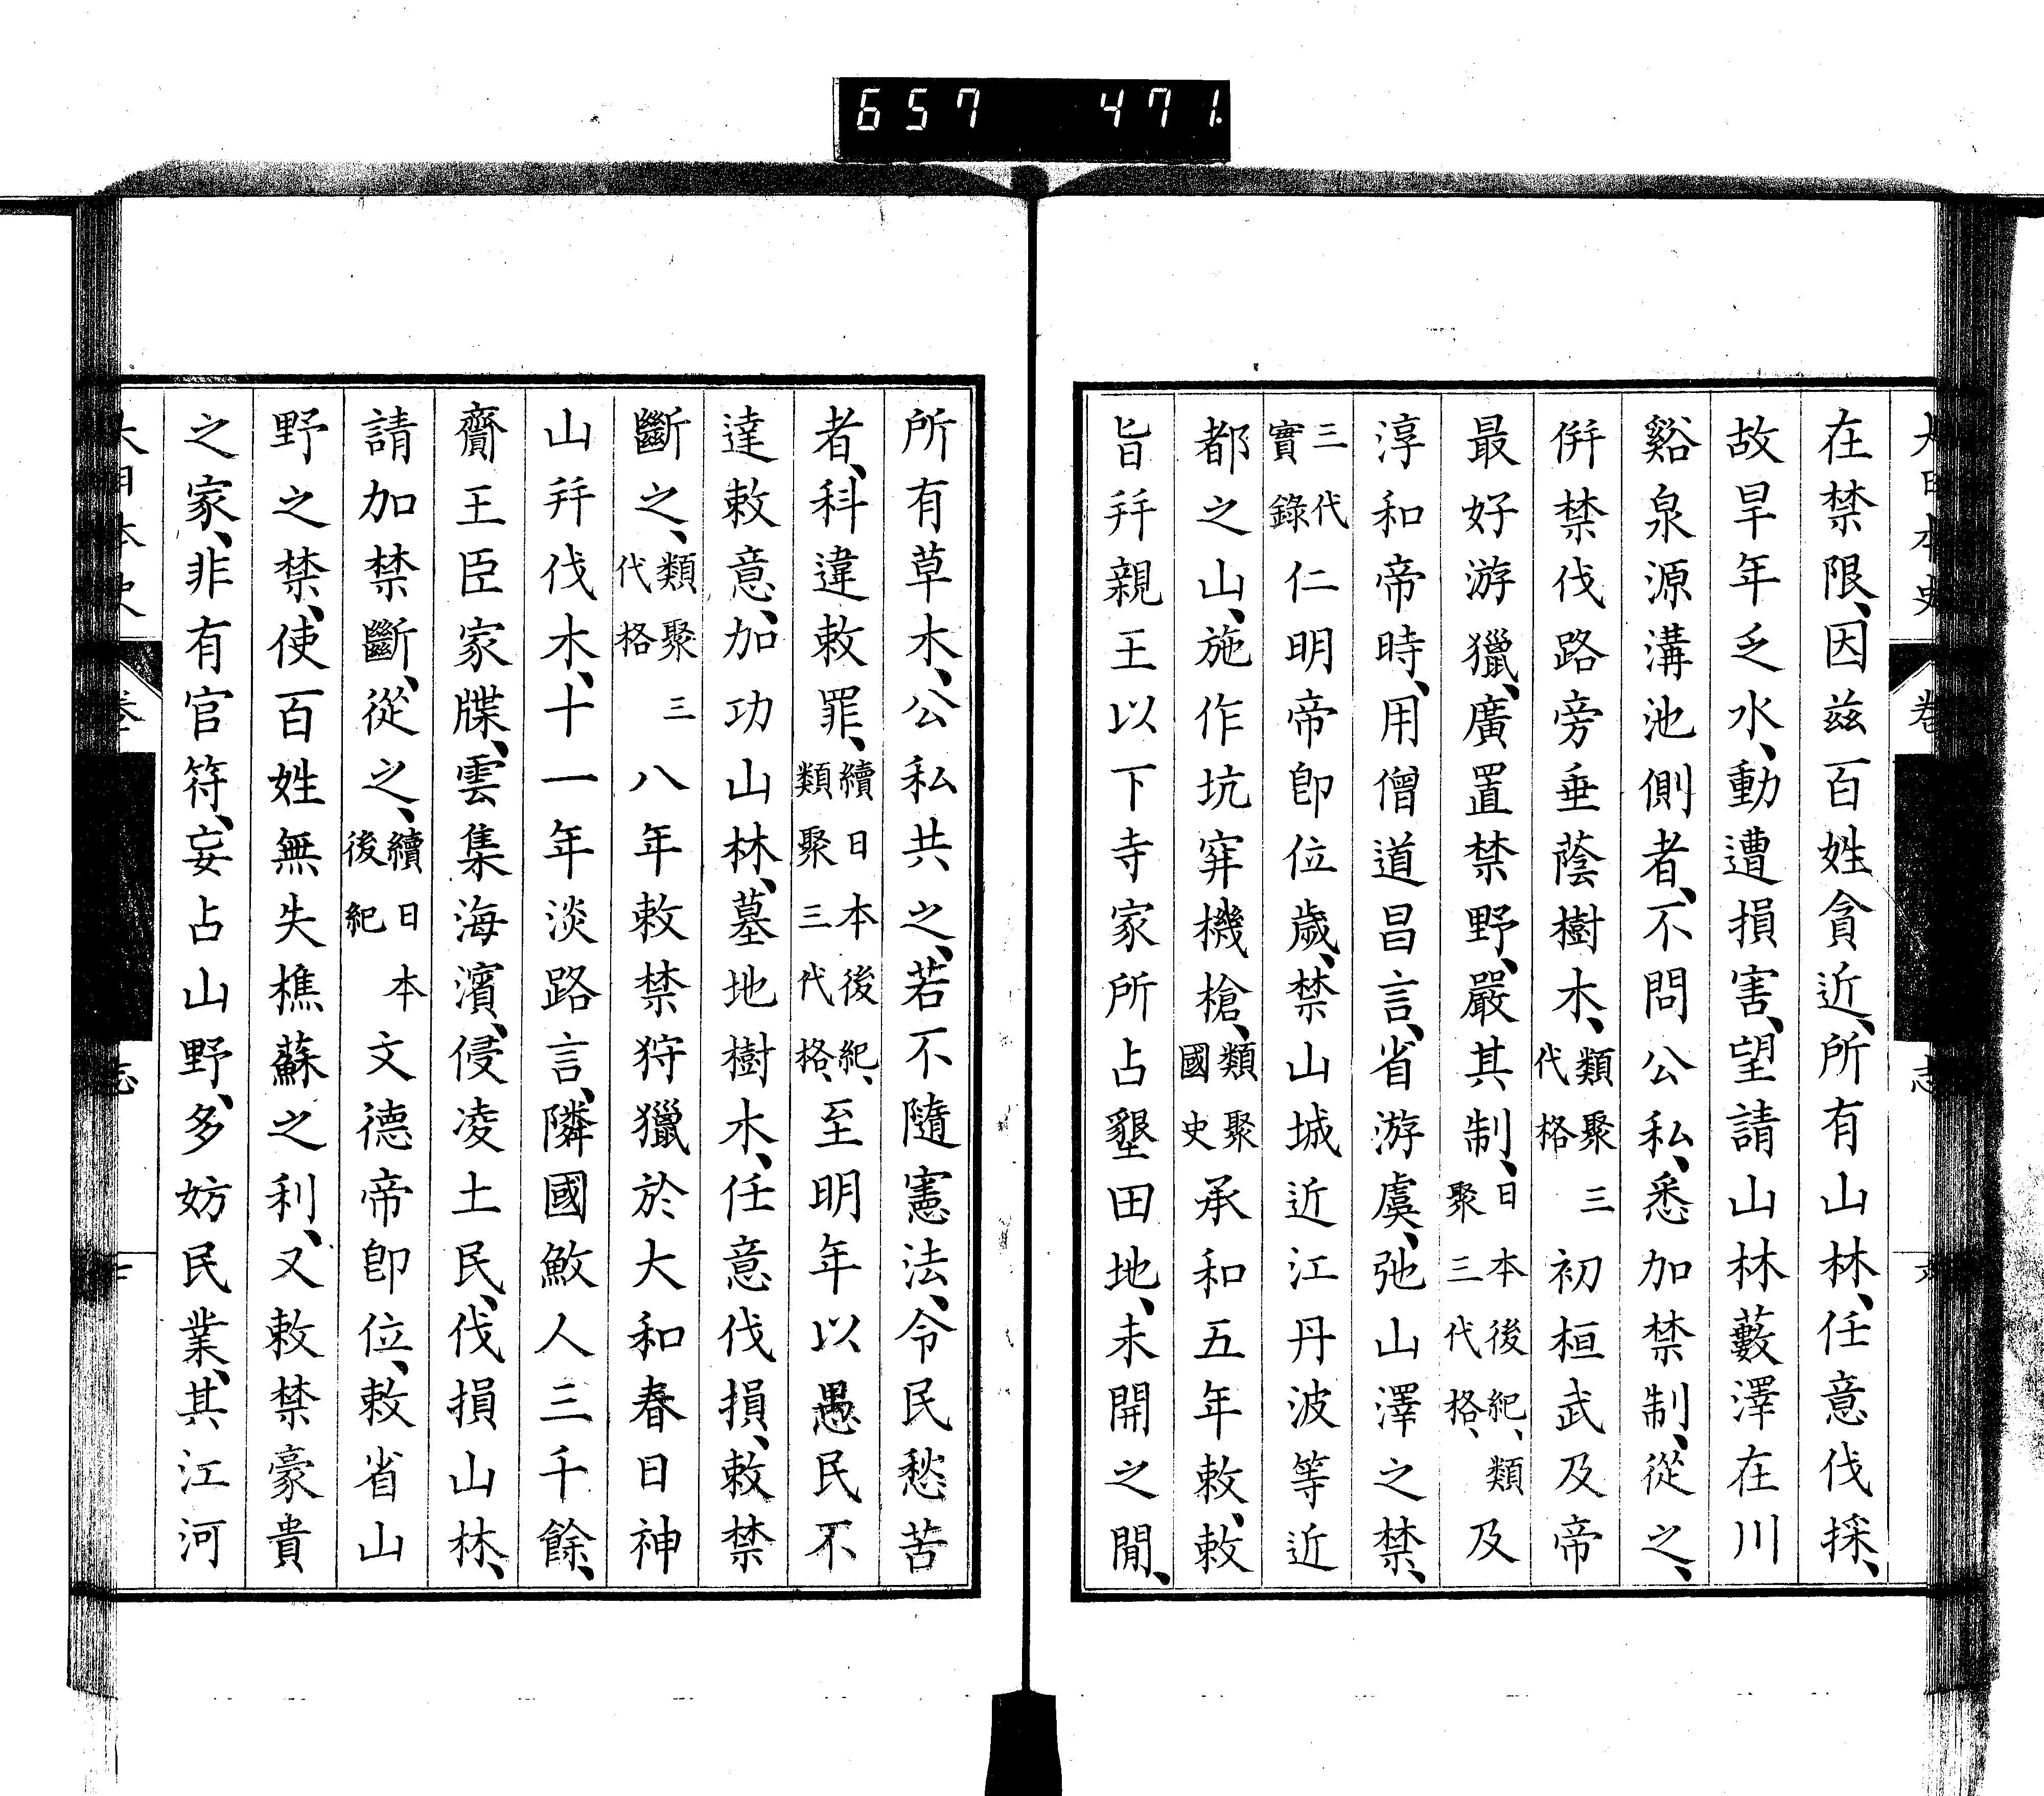 657 471.
大日本史 卷 志
在禁限、因茲百姓貪近、所有山林、任意伐採、
故旱年乏水、動遭損害、望請山林藪澤在川
谿泉源溝池側者、不問公私、悉加禁制、從之、
併禁伐路旁垂蔭樹木、類聚三代格初桓武及帝
最好游獵、廣置禁野、嚴其制、日本後紀、類聚三代格、及
淳和帝時、用僧道昌言、省游虞、弛山澤之禁、
三代實錄仁明帝卽位歲、禁山城近江丹波等近
都之山、施作坑穽機槍、類聚國史承和五年敕、敕
旨幷親王以下寺家所占墾田地、未開之閒、
所有草木、公私共之、若不隨憲法、令民愁苦
者、科違敕罪、續日本後紀、類聚三代格、至明年以愚民不
達敕意、加功山林、墓地樹木、任意伐損、敕禁
斷之、類聚三代格八年敕禁狩獵於大和春日神
山幷伐木、十一年淡路言、隣國鮁人三千餘、
齎王臣家牒、雲集海濱、侵凌土民、伐損山林、
請加禁斷、從之、續日本後紀文德帝卽位、敕省山
野之禁、使百姓無失樵蘇之利、又敕禁豪貴
之家、非有官符、妄占山野、多妨民業、其江河
大日本史 卷 志